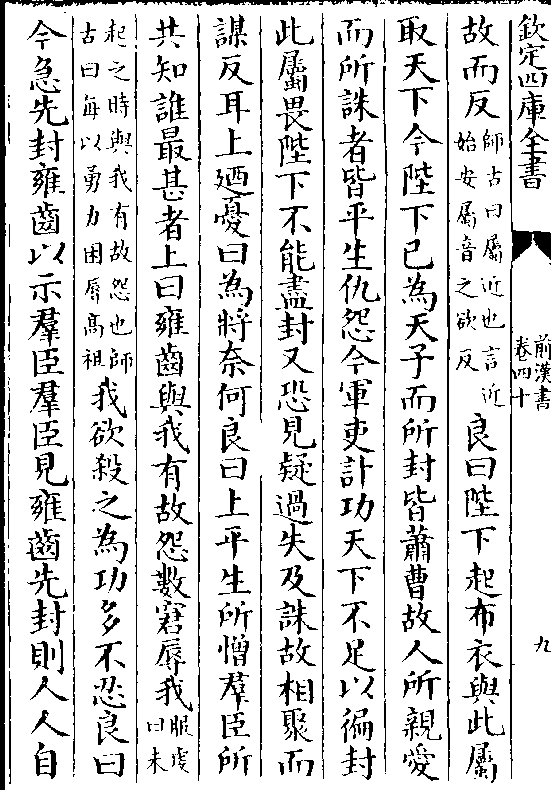 欽定四庫全書
前漢書
卷四十
九
故而反師古曰屬近也言近始安屬音之欲反良曰陛下起布衣與此屬
取天下今陛下已為天子而所封皆蕭曹故人所親愛
而所誅者皆平生仇怨今軍吏計功天下不足以徧封
此屬畏陛下不能盡封又恐見疑過失及誅故相聚而
謀反耳上迺憂曰為將奈何良曰上平生所憎羣臣所
共知誰最甚者上曰雍齒與我有故怨數窘辱我服虔曰未
起之時與我有故怨也師古曰每以勇力困辱高祖我欲殺之為功多不忍良曰
今急先封雍齒以示羣臣羣臣見雍齒先封則人人自